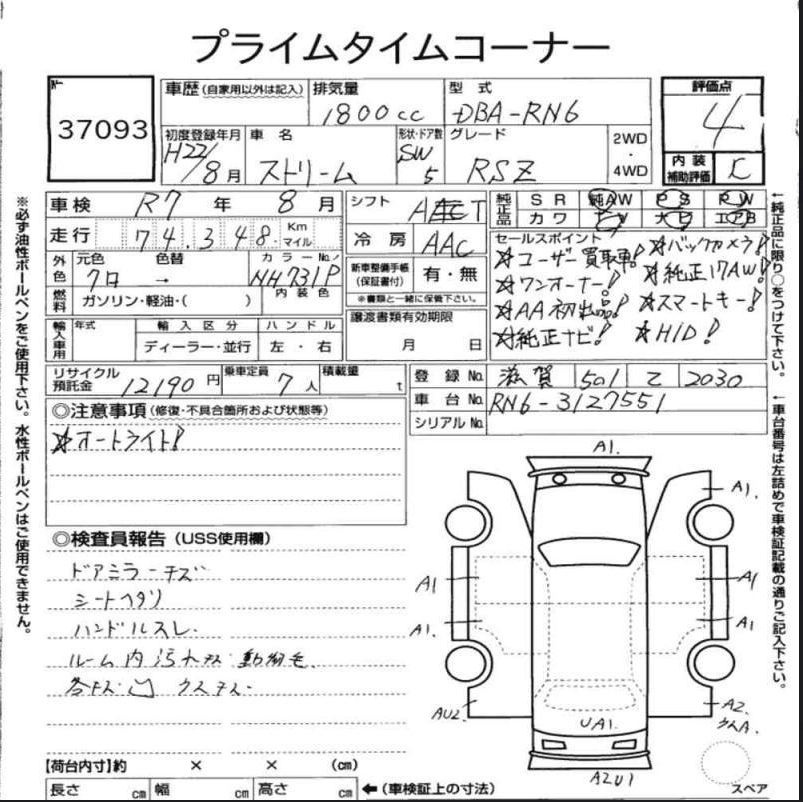 プライムタイムコーナー
37093
車歴 (自家用以外は記入) 排気量 型式 評価点
1800cc DBA-RN6 4
初度登録年月 車名 形状・ドア数 グレード 2WD・4WD
H22/8月 ストリーム SW 5 RSZ
内装補助評価 C
車検 R7年 8月 シフト AT
走行 74,348 Km マイル 冷房 AAC
純正品 SR 純AW PS PW
カワ TV ナビ エアB
外色 元色 色替 カラーNo. 新車整備手帳(保証書付) 有・無
クロ → NH731P
※書類と一緒に保管下さい。
燃料 ガソリン・軽油・( ) 内装色
セールスポイント
☆ユーザー買取車! ☆バックカメラ!
☆ワンオーナー! ☆純正17AW!
☆AA初出品! ☆スマートキー!
☆純正ナビ! ☆HID!
輸入車用 年式 輸入区分 ハンドル 譲渡書類有効期限
ディーラー・並行 左・右 月 日
リサイクル預託金 12190円 乗車定員 7人 積載量 t
登録No. 滋賀 501 て 2030
車台No. RN6-3127551
シリアルNo.
◎注意事項 (修復・不具合箇所および状態等)
☆オートライト!
◎検査員報告 (USS使用欄)
ドアミラーキズ
シートヘタリ
ハンドルスレ
ルーム内汚れ 動物毛
A1.
A1.
A1 A1
A1. A1
AU2. A2.
UA1.
A2U1
スペア
【荷台内寸】約 × × (cm)
長さ cm 幅 cm 高さ cm ←(車検証上の寸法)
※必ず油性ボールペンをご使用下さい。水性ボールペンはご使用できません。
←純正品に限り○をつけて下さい。
←車台番号は左詰めで車検証記載の通りご記入下さい。